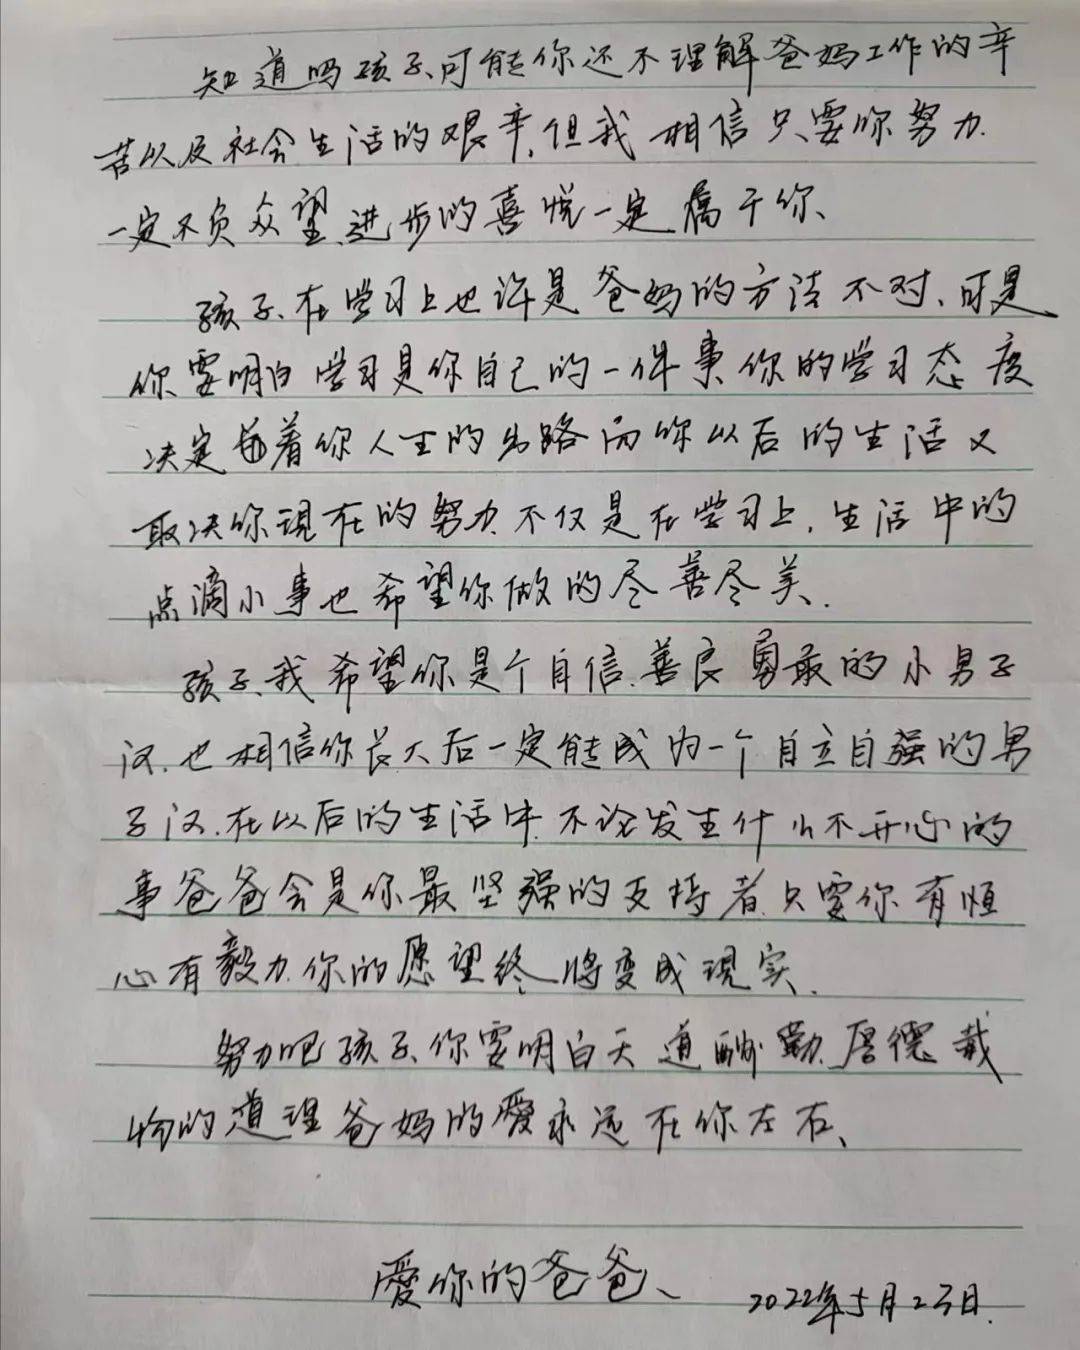 知道吗孩子、可能你还不理解爸妈工作的辛
苦以及社会生活的艰辛,但我相信只要你努力.
一定不负众望.进步的喜悦一定属于你、
孩子、在学习上也许是爸妈的方法不对、可是
你要明白学习是你自己的一件事你的学习态度
决定着你人生的出路而你以后的生活又
取决你现在的努力.不仅是在学习上,生活中的
点滴小事也希望你做的尽善尽美.
孩子、我希望你是个自信.善良勇敢的小男子
汉.也相信你长大后一定能成为一个自立自强的男
子汉.在以后的生活中.不论发生什么不开心的
事爸爸会是你最坚强的支持者.只要你有恒
心有毅力.你的愿望终将变成现实.
努力吧孩子、你要明白天道酬勤.厚德载
物的道理爸妈的爱永远在你左右、
爱你的爸爸、 2022年5月23日.